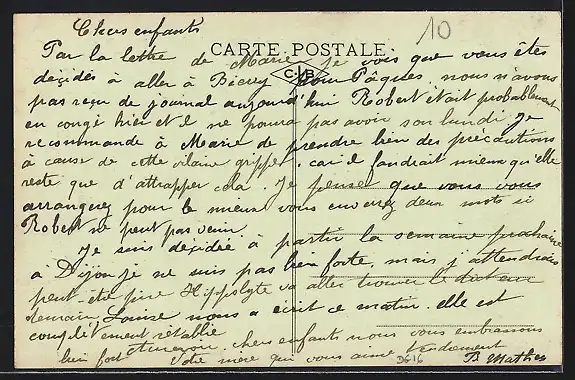 10
Chers enfants
CARTE POSTALE
C B
Par la lettre de Marie je vois que vous êtes
décidés à aller à Bierry pour Pâques, nous n'avons
pas reçu de journal aujourd'hui Robert était probablement
en congé hier et l ne pourra pas avoir son lundi Je
recommande à Marie de prendre bien des précautions
à cause de cette vilaine grippe, car il faudrait mieux qu'elle
reste que d'attrapper cela. Je pense que vous vous
arrangerez pour le mieux vous enverrez deux mots si
Robert ne peut pas venir.
Je suis décidée à partir la semaine prochaine
à Dijon je ne suis pas bien forte, mais j'attendrais
peut être pire Hippolyte va aller trouver le docteur
demain, Louise nous a écrit ce matin elle est
complètement rétablie
chers enfants nous vous embrassons
bien fort
Votre mère qui vous aime tendrement
B Mathieu
D616